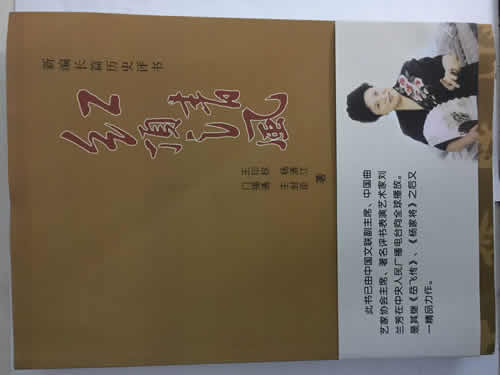 新编长篇历史评书
王印权
著
此书已由中国文联副主席、中国曲
艺家协会主席、著名评书表演艺术家刘
兰芳在中央人民广播电台向全球播放。
是其继《岳飞传》、《杨家将》之后又
一精品力作。